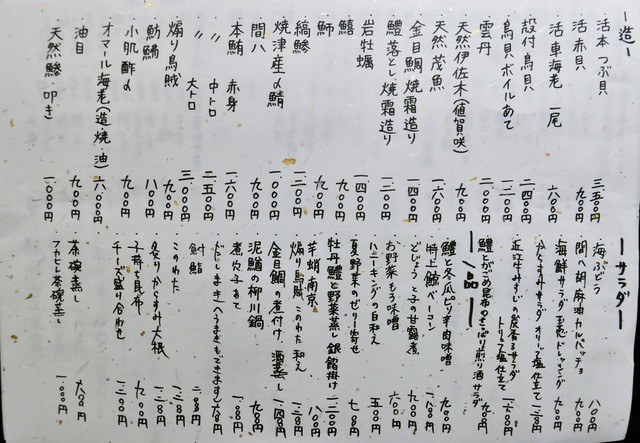 ー造ー
活本つぶ貝 三、五〇〇円
活赤貝 九〇〇円
活車海老 一尾 六〇〇円
殻付鳥貝 二、四〇〇円
鳥貝ボイルあて 一、二〇〇円
雲丹 二、〇〇〇円
天然伊佐木(値賀咲) 九〇〇円
天然茂魚 一、六〇〇円
金目鯛焼霜造り 一、四〇〇円
鱧落とし、焼霜造り 一、二〇〇円
岩牡蠣 一、四〇〇円
鱚 九〇〇円
鰤 九〇〇円
縞鯵 一、二〇〇円
焼津産〆鯖 九〇〇円
間八 九〇〇円
本鮪 赤身 一、六〇〇円
〃 中トロ 二、五〇〇円
〃 大トロ 三、〇〇〇円
煽り烏賊 九〇〇円
魴鮄 八〇〇円
小肌酢〆 九〇〇円
オマール海老(造・焼・油) 六、〇〇〇円
油目 九〇〇円
天然鯵・叩き 一、〇〇〇円
ーサラダー
海ぶどう 八〇〇円
間八胡麻油カルパッチョ 九〇〇円
海鮮サラダ 玉葱ドレッシング 九〇〇円
からすみサラダ オリーブ塩仕立て
トリュフ塩仕立て
鱧とがごめ昆布のさっぱり煎り酒サラダ 九〇〇円
ー一品ー
鱧と冬瓜ピリ辛肉味噌 九〇〇円
特上鯨ベーコン 一、八〇〇円
どじょうと子の甘露煮 九〇〇円
お野菜もろ味噌 六〇〇円
ハニーキングの白和え 五〇〇円
夏野菜のゼリー寄せ 七八〇円
牡丹鱧と野菜蒸し 銀餡掛け 一、二〇〇円
芋蛸南京 八〇〇円
煽り烏賊このわた和え 一、二八〇円
金目鯛の煮付け、酒蒸し 一、四八〇円
泥鰌の柳川鍋 九八〇円
煮穴子あて 一、〇八〇円
だしまき(へうまきもできます)
鮒鮨
このわた
炙りからすみ大根
子持ち昆布
チーズ盛り合わせ
茶碗蒸し
フカヒレ茶碗蒸し 一、〇〇〇円